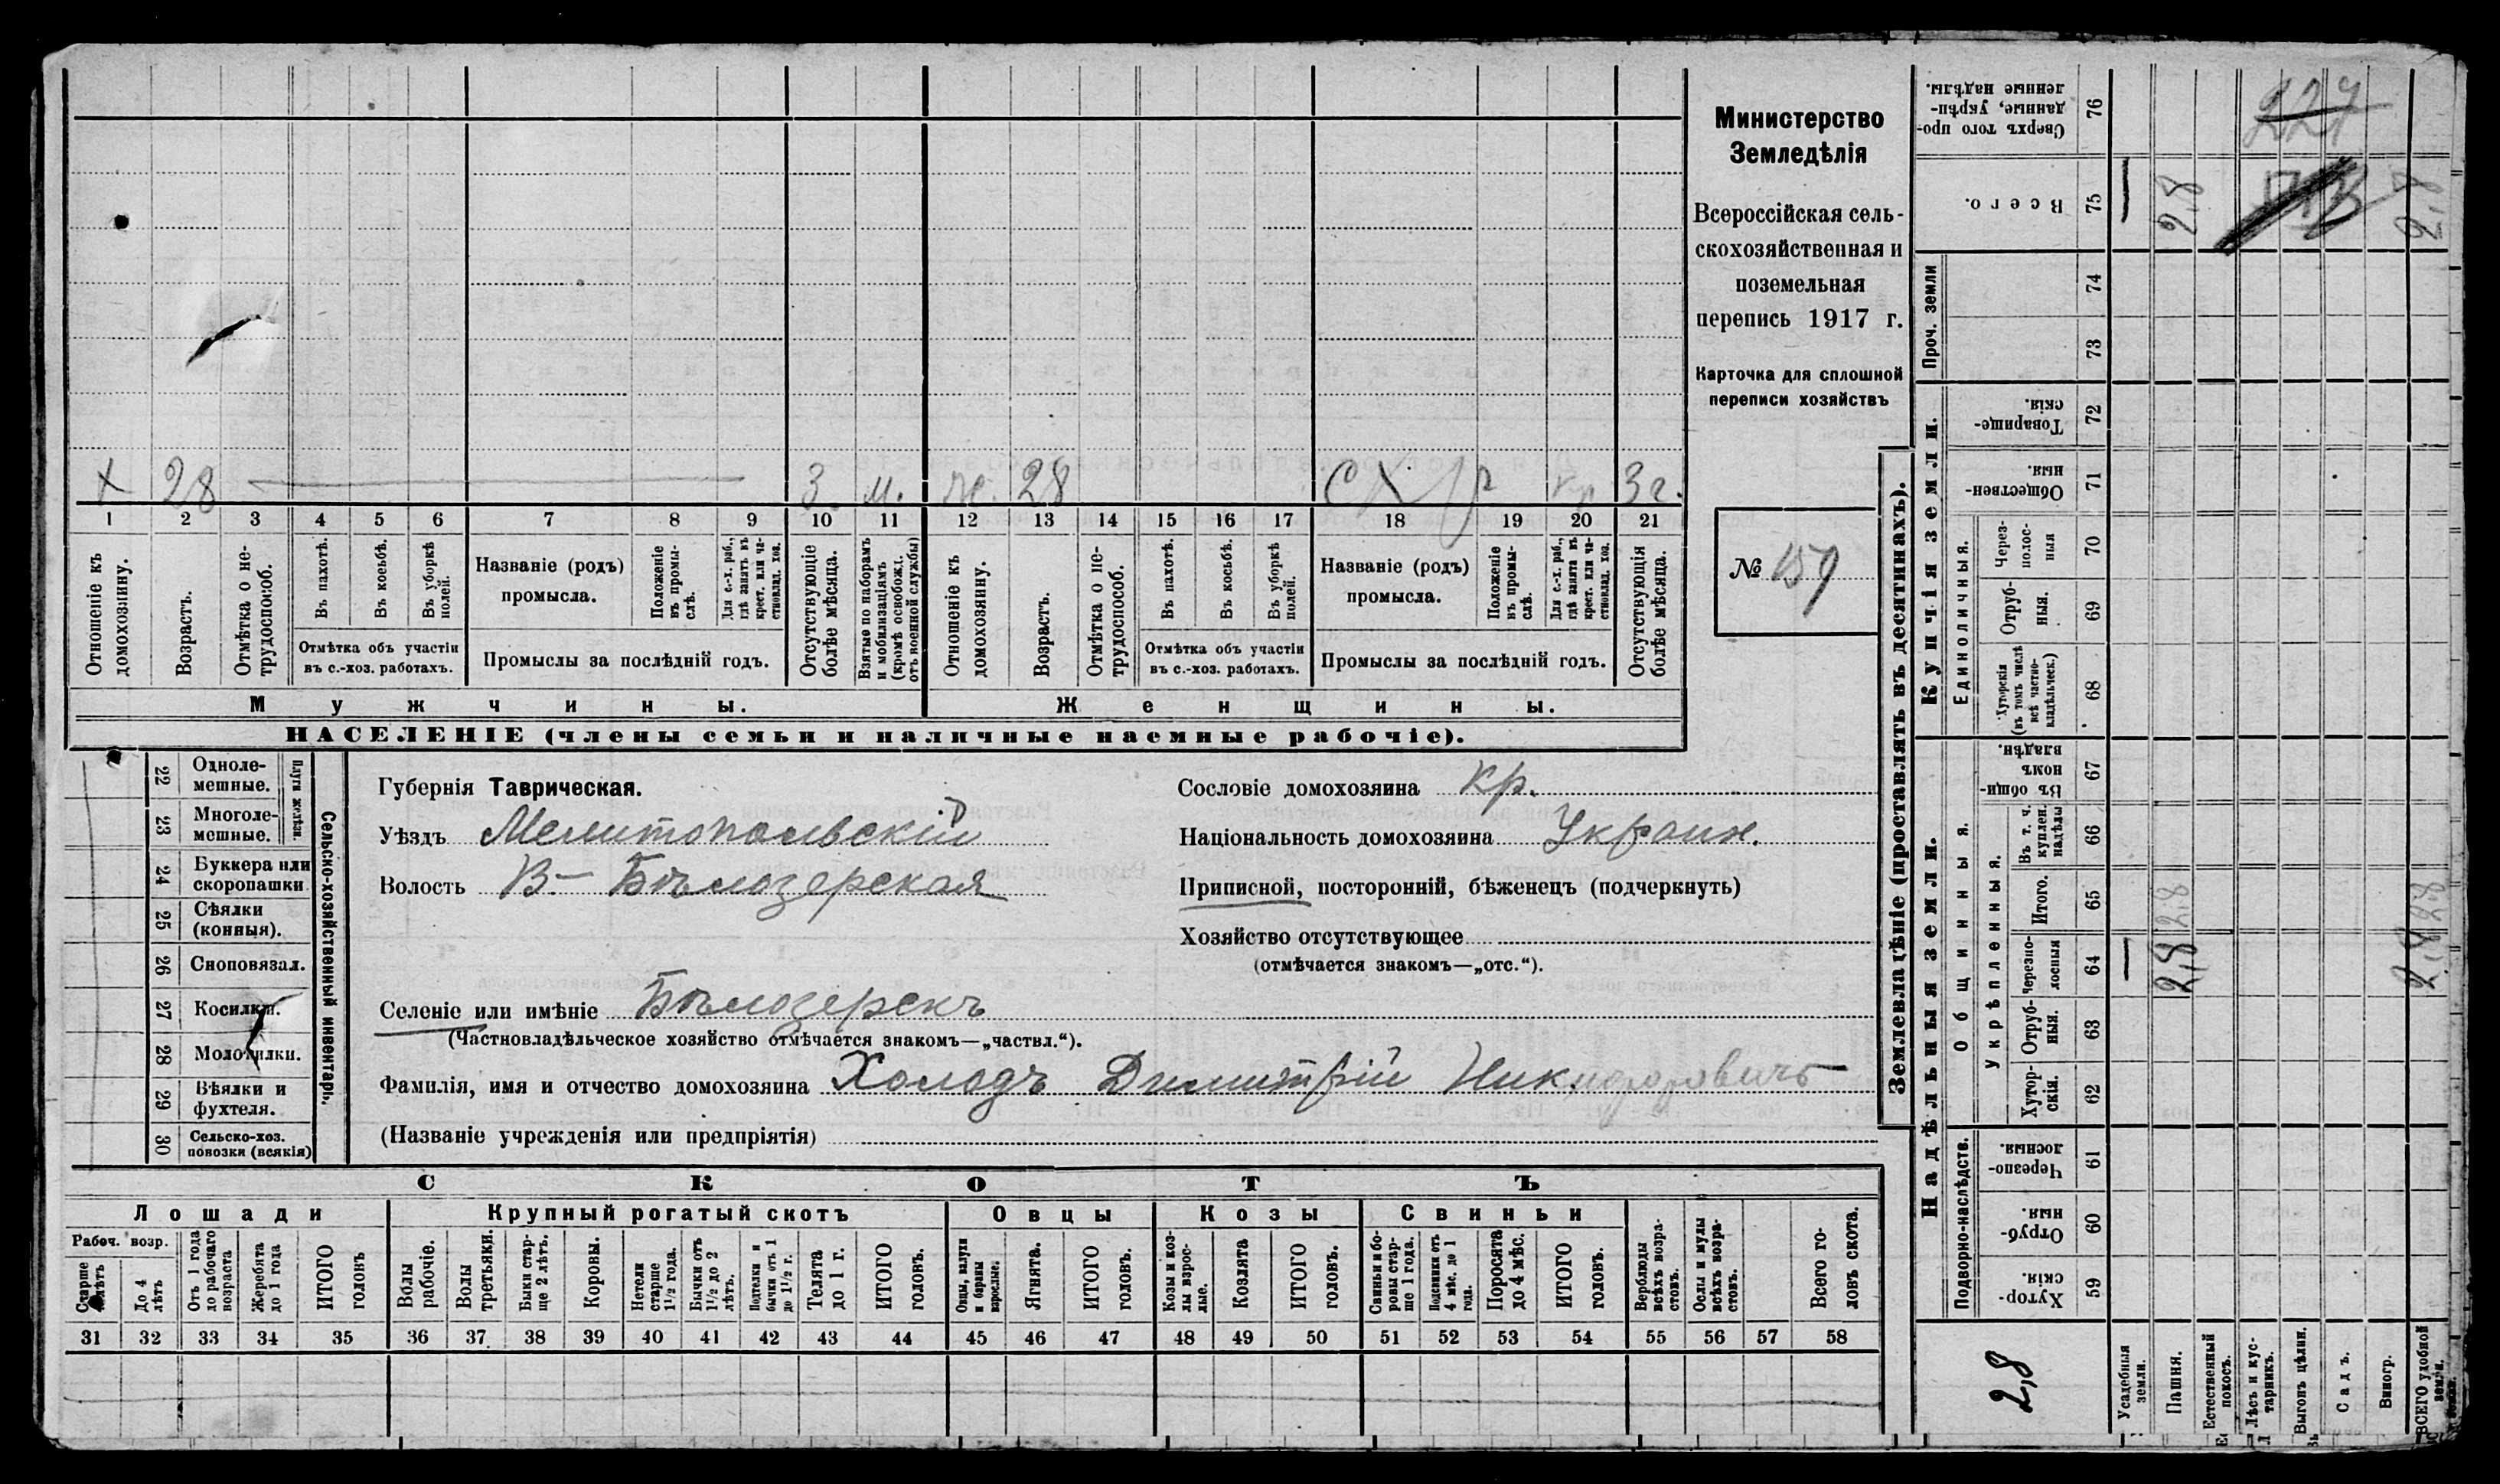 Министерство
Земледѣлія
Всероссійская сель-
скохозяйственная и
поземельная
перепись 1917 г.
Карточка для сплошной
переписи хозяйствъ
№ 159
х 28 3 м. ж. 28 С Х р кр 3 г.
1 2 3 4 5 6 7 8 9 10 11 12 13 14 15 16 17 18 19 20 21
Отношеніе къ домохозяину.
Возрастъ.
Отмѣтка о не-трудоспособ.
Въ пахотѣ.
Въ косьбѣ.
Въ уборкѣ полей.
Отмѣтка объ участіи
въ с.-хоз. работахъ.
Названіе (родъ)
промысла.
Положеніе въ промы-слѣ.
Для с.-х. раб., гдѣ занатъ въ крест. или ча-стновлад. хоз.
Промыслы за послѣдній годъ.
Отсутствующіе болѣе мѣсяца.
Взятые по наборамъ и мобилизаціямъ (кромѣ освобожд. отъ военной службы)
Отношеніе къ домохозяину.
Возрастъ.
Отмѣтка о не-трудоспособ.
Въ пахотѣ.
Въ косьбѣ.
Въ уборкѣ полей.
Отмѣтка объ участіи
въ с.-хоз. работахъ.
Названіе (родъ)
промысла.
Положеніе въ промы-слѣ.
Для с.-х. раб., гдѣ занята въ крест. или ча-стновлад. хоз.
Промыслы за послѣдній годъ.
Отсутствующія болѣе мѣсяца.
Мужчины.
Женщины.
НАСЕЛЕНІЕ (члены семьи и наличные наемные рабочіе).
22 Одноле-мешные.
23 Многоле-мешные.
Плуги желѣзн.
24 Буккера или скоропашки
25 Сѣялки (конныя).
26 Сноповязал.
27 Косилки.
28 Молотилки.
29 Вѣялки и фухтеля.
30 Сельско-хоз. повозки (всякія)
Сельско-хозяйственный инвентарь.
Губернія Таврическая.
Уѣздъ Мелитопольскій
Волость В-Бѣлозерская
Сословіе домохозяина кр.
Національность домохозяина Украин.
Приписной, посторонній, бѣженецъ (подчеркнуть)
Хозяйство отсутствующее
(отмѣчается знакомъ—„отс.“).
Селеніе или имѣніе Бѣлозерскъ
(Частновладѣльческое хозяйство отмѣчается знакомъ—„частвл.“).
Фамилія, имя и отчество домохозяина Холодъ Димитрій Никифоровичъ
(Названіе учрежденія или предпріятія)
СКОТЪ
Лошади
Крупный рогатый скотъ
Овцы
Козы
Свиньи
Рабоч. возр.
Старше 4 лѣтъ
До 4 лѣтъ
Отъ 1 года до рабочаго возраста
Жеребята до 1 года
ИТОГО головъ
Волы рабочіе.
Волы третьяки.
Быки стар-ще 2 лѣтъ.
Коровы.
Нетели старше 1½ года.
Бычки отъ 1½ до 2 лѣтъ.
Подтелки и бычки отъ 1 до 1½ г.
Телята до 1 г.
ИТОГО головъ.
Овцы, валухи и бараны взрослые.
Ягнята.
ИТОГО головъ.
Козы и коз-лы взрос-лые.
Козлята
ИТОГО головъ.
Свиньи и бо-ровы стар-ше 1 года.
Подсвинки отъ 4 мѣс. до 1 года.
Поросята до 4 мѣс.
ИТОГО головъ.
Верблюды всѣхъ возра-стовъ.
Ослы и мулы всѣхъ возра-стовъ.
Всего го-ловъ скота.
31 32 33 34 35 36 37 38 39 40 41 42 43 44 45 46 47 48 49 50 51 52 53 54 55 56 57 58
Землевладѣніе (проставлять въ десятинахъ).
Надѣльныя земли.
Купчія земли.
Проч. земли
Сверхъ того про-данные, укрѣп-ленные надѣлы. 76
227
Всего. 75
2,8 2,8
74
73
Товарище-скія. 72
Обществен-ныя. 71
Единоличныя.
Через-полос-ныя 70
Отруб-ныя. 69
Хуторскія (въ томъ числѣ всѣ частно-владѣльческ.) 68
Общинныя.
Въ общи-номъ владѣн. 67
Укрѣпленныя.
Въ т. ч. куплен. надѣлы 66
Итого. 65
2,8 2,8
Черезпо-лосныя 64
2,8 2,8
Отруб-ныя. 63
Хутор-скія. 62
Подворно-наслѣдств.
Черезпо-лосныя 61
Отруб-ныя. 60
Хутор-скія. 59
2,8
Усадебныя земли.
Пашня.
Естественный покосъ.
Лѣсъ и кус-тарникъ.
Выгонъ цѣлин.
Садъ.
Виногр.
ВСЕГО удобной земли.